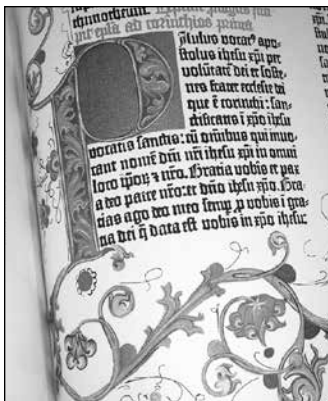 epla ad corinthios prima
Paulus vocat⁹ apo-
stolus ihesu xp̄i per
volūtatē dei et soste-
nes frater ecclesie dei
que ē corinthi: san-
ctificatis ī xp̄o ihesu
vocatis sanctis: cū omnibus qui invo-
cant nomē dn̄i nr̄i ihesu xp̄i in omni
loco ip̄oꝝ ⁊ nr̄o. Gratia vobis et pax
a deo patre nr̄o: et dn̄o ihesu xp̄o. Gra-
tias ago deo meo semp̲ ꝓ vobis ī gra-
tia dei q̄ data est vobis in xp̄o ihesu: